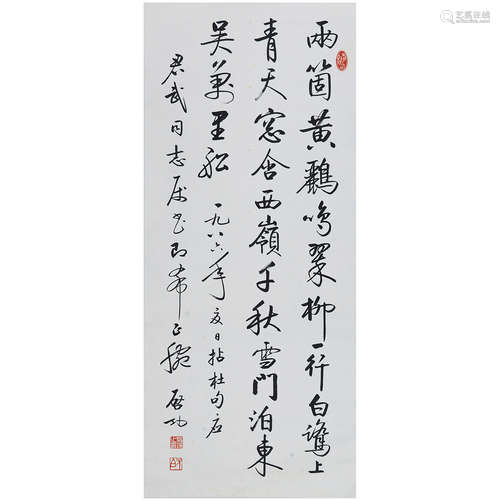 兩箇黃鸝鳴翠柳一行白鷺上
青天窓含西嶺千秋雪門泊東
吳萬里船 一九八六年夏日拈杜句應
君武同志屬書即希正腕 啓功